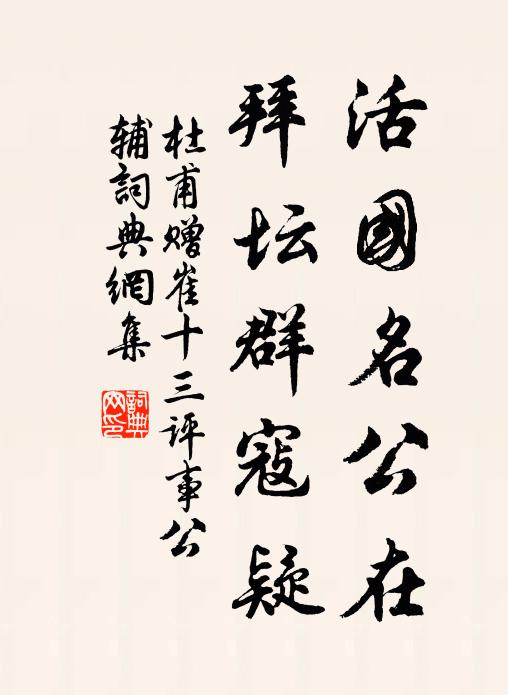 活國名公在
拜坛群寇疑
杜甫赠崔十三评事公
辅詞典網集
詞典
网印